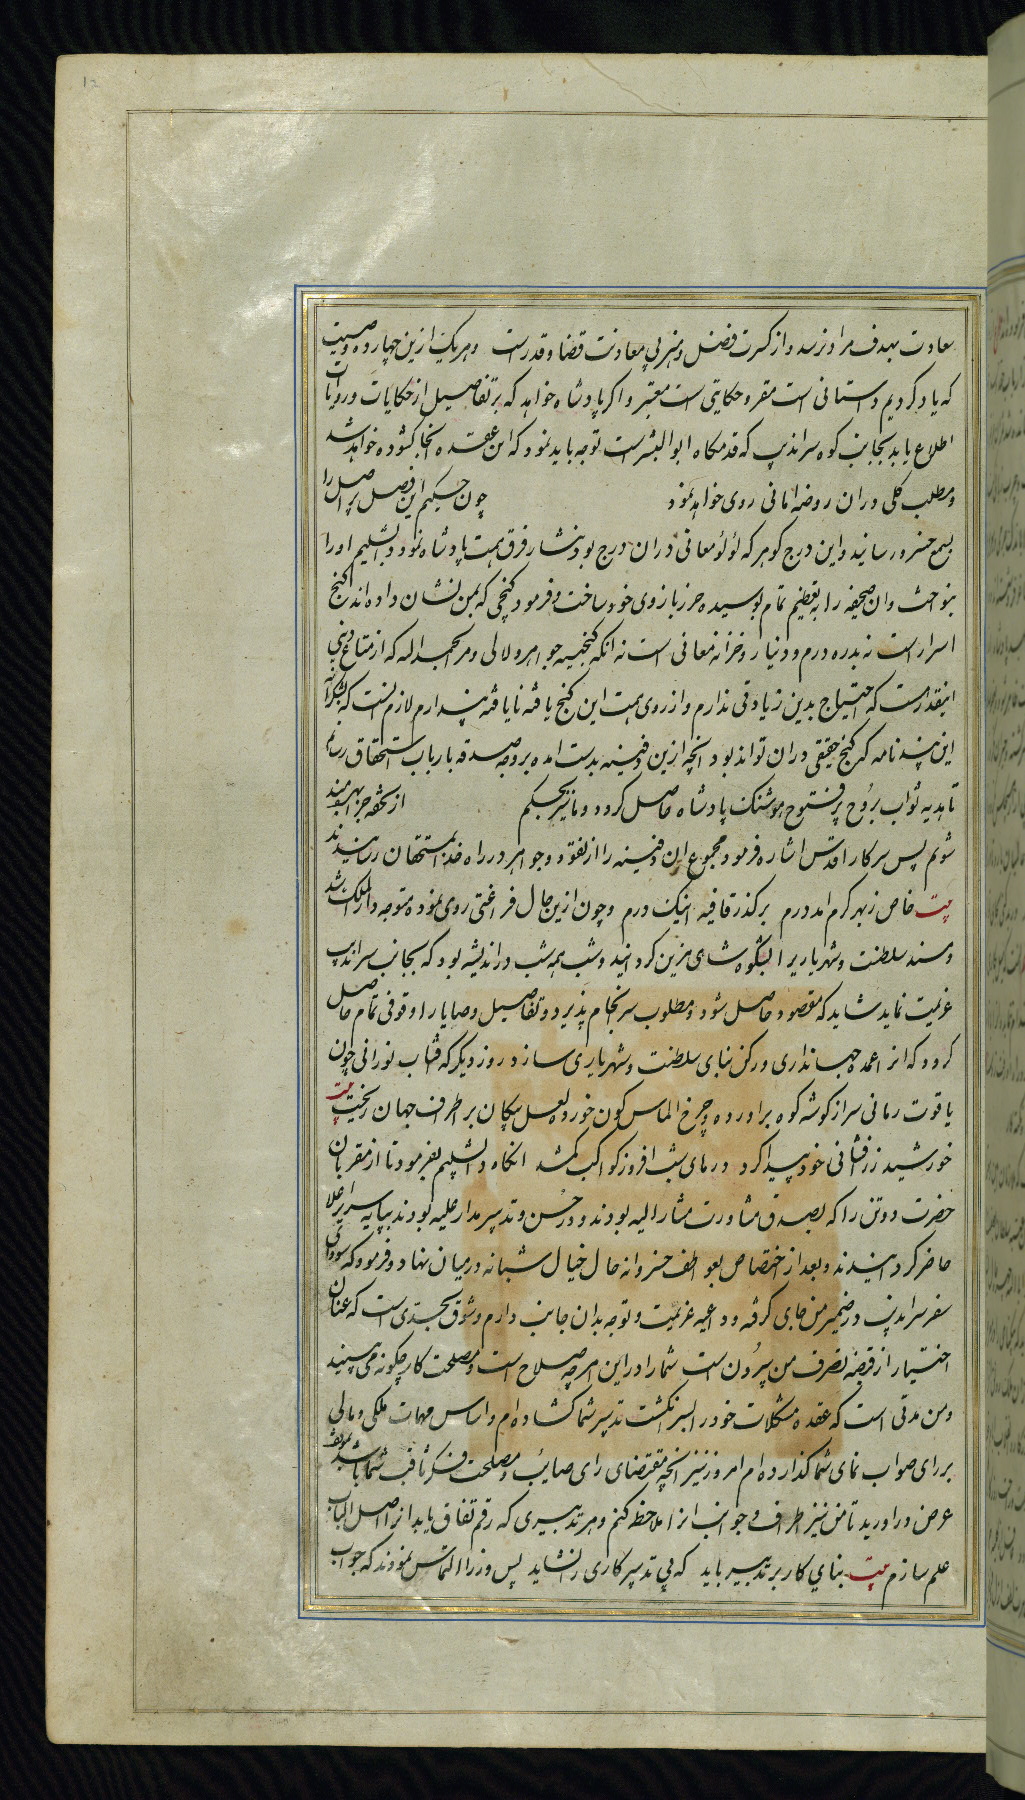 سعادت بهدف مراد نرسد و از کثرت فضل و هنر بی معاونت قضا و قدرست و هریک ازین چهارده وصیت
که یاد کردیم داستانی است مقرر و حکایتی است معتبر و اکر پادشاه خواهد که بر تفاصیل از حکایات و روایات
اطلاع یابد بجانب کوه سراندیپ که قدمکاه ابوالبشرست توجه باید نمود که این عقده انجا کشوده خواهد شد
و مطلب کلی دران روضه امانی روی خواهد نمود چون حکیم این فصل پر اصل را
بسمع خسرو رسانید و این درج کوهر که لؤلؤ معانی دران درج بود نثار فرق همت پادشاه نمود دابشلیم او را
بنواخت و ان صحیفه را به تعظیم تمام بوسیده حرز بازوی خود ساخت و فرمود کنجی که بمن نشان داده اند کنج
اسرار است نه بدره درم و دینار و خزانه معانی است نه انکه کنجینه جواهر و لالی و مرا بحمد الله که از متاع دنیی
اینقدرست که احتیاج بدین زیادتی ندارم و از روی همت این کنج یافته نایافته پندارم لازم انست که بشکرانه
این پند نامه که کنج حقیقی دران تواند بود انچه ازین دفینه بدست امده بر وجه صدقه بارباب استحقاق رسانم
تا هدیه ثواب بروح پر فتوح هوشنک پادشاه حاصل کردد و ما نیز بحکم
شوئم پس سرکار اقدس اشاره فرمود مجموع ان دفینه را از نقود و جواهر در راه خدا بمستحقان رسانیدند
بیت خاص ز بهر کرم امد درم برکذر قافیه اینک درم و چون ازین حال فراغتی روی نموده متوجه دارالملک شد
و مسند سلطنت و شهریاریرا بشکوه شاهی مزین کردانید و شب همه شب در اندیشه بود که بجانب سراندیپ
عزیمت نماید شاید که مقصود حاصل شود و مطلوب سرانجام پذیرد و تفاصیل وصایا را وقوفی تمام حاصل
کردد که انرا عمده جهانداری و رکن بنای سلطنت و شهریاری سازد روز دیکر که افتاب نورانی چون
یاقوت رمانی سر از کوشه کوه براورده و چرخ الماس کون خورده لعل پیکان بر اطراف جهان ریخت بیت
خورشید زرفشانی خود پیدا کرد درهای شب افروز کواکب کم شد انکاه دابشلیم بفرمود تا از مقربان
حضرت دو تن را که بصدق مشاورت مشارالیه بودند و در حسن تدبیر مدار علیه بودند بپایه سریر اعلا
حاضر کردانیدند و بعد از اختصاص بعواطف خسروانه حال خیال شبانه در میان نهاد و فرمود که سودای
سفر سراندیپ در ضمیر من جای کرفته و داعیه عزیمت و توجه بدان جانب دارم و شوق بحدی است که عنان
اختیار از قبضه تصرف من بیرون است شما را در این امر چه صلاح است و مصلحت کار چکونه می بینید
و من مدتی است که عقده مشکلات خود را بسر انکشت تدبیر شما کشاده ام و اساس مهمات ملکی و مالی
بر رای صواب نمای شما کذارده ام امروز نیز انچه مقتضای رای صائب و مصلحت فکر ثاقب شما باشد بموقف
عرض دراورید تا من نیز اطراف و جوانب انرا ملاحظه کنم و هر تدبیری که رقم اتفاق یابد انرا اصل الباب
علم سازم بیت بنای کار بر تدبیر باید که بی تدبیر کاری را نشاید پس وزرا التماس نمودند که جواب